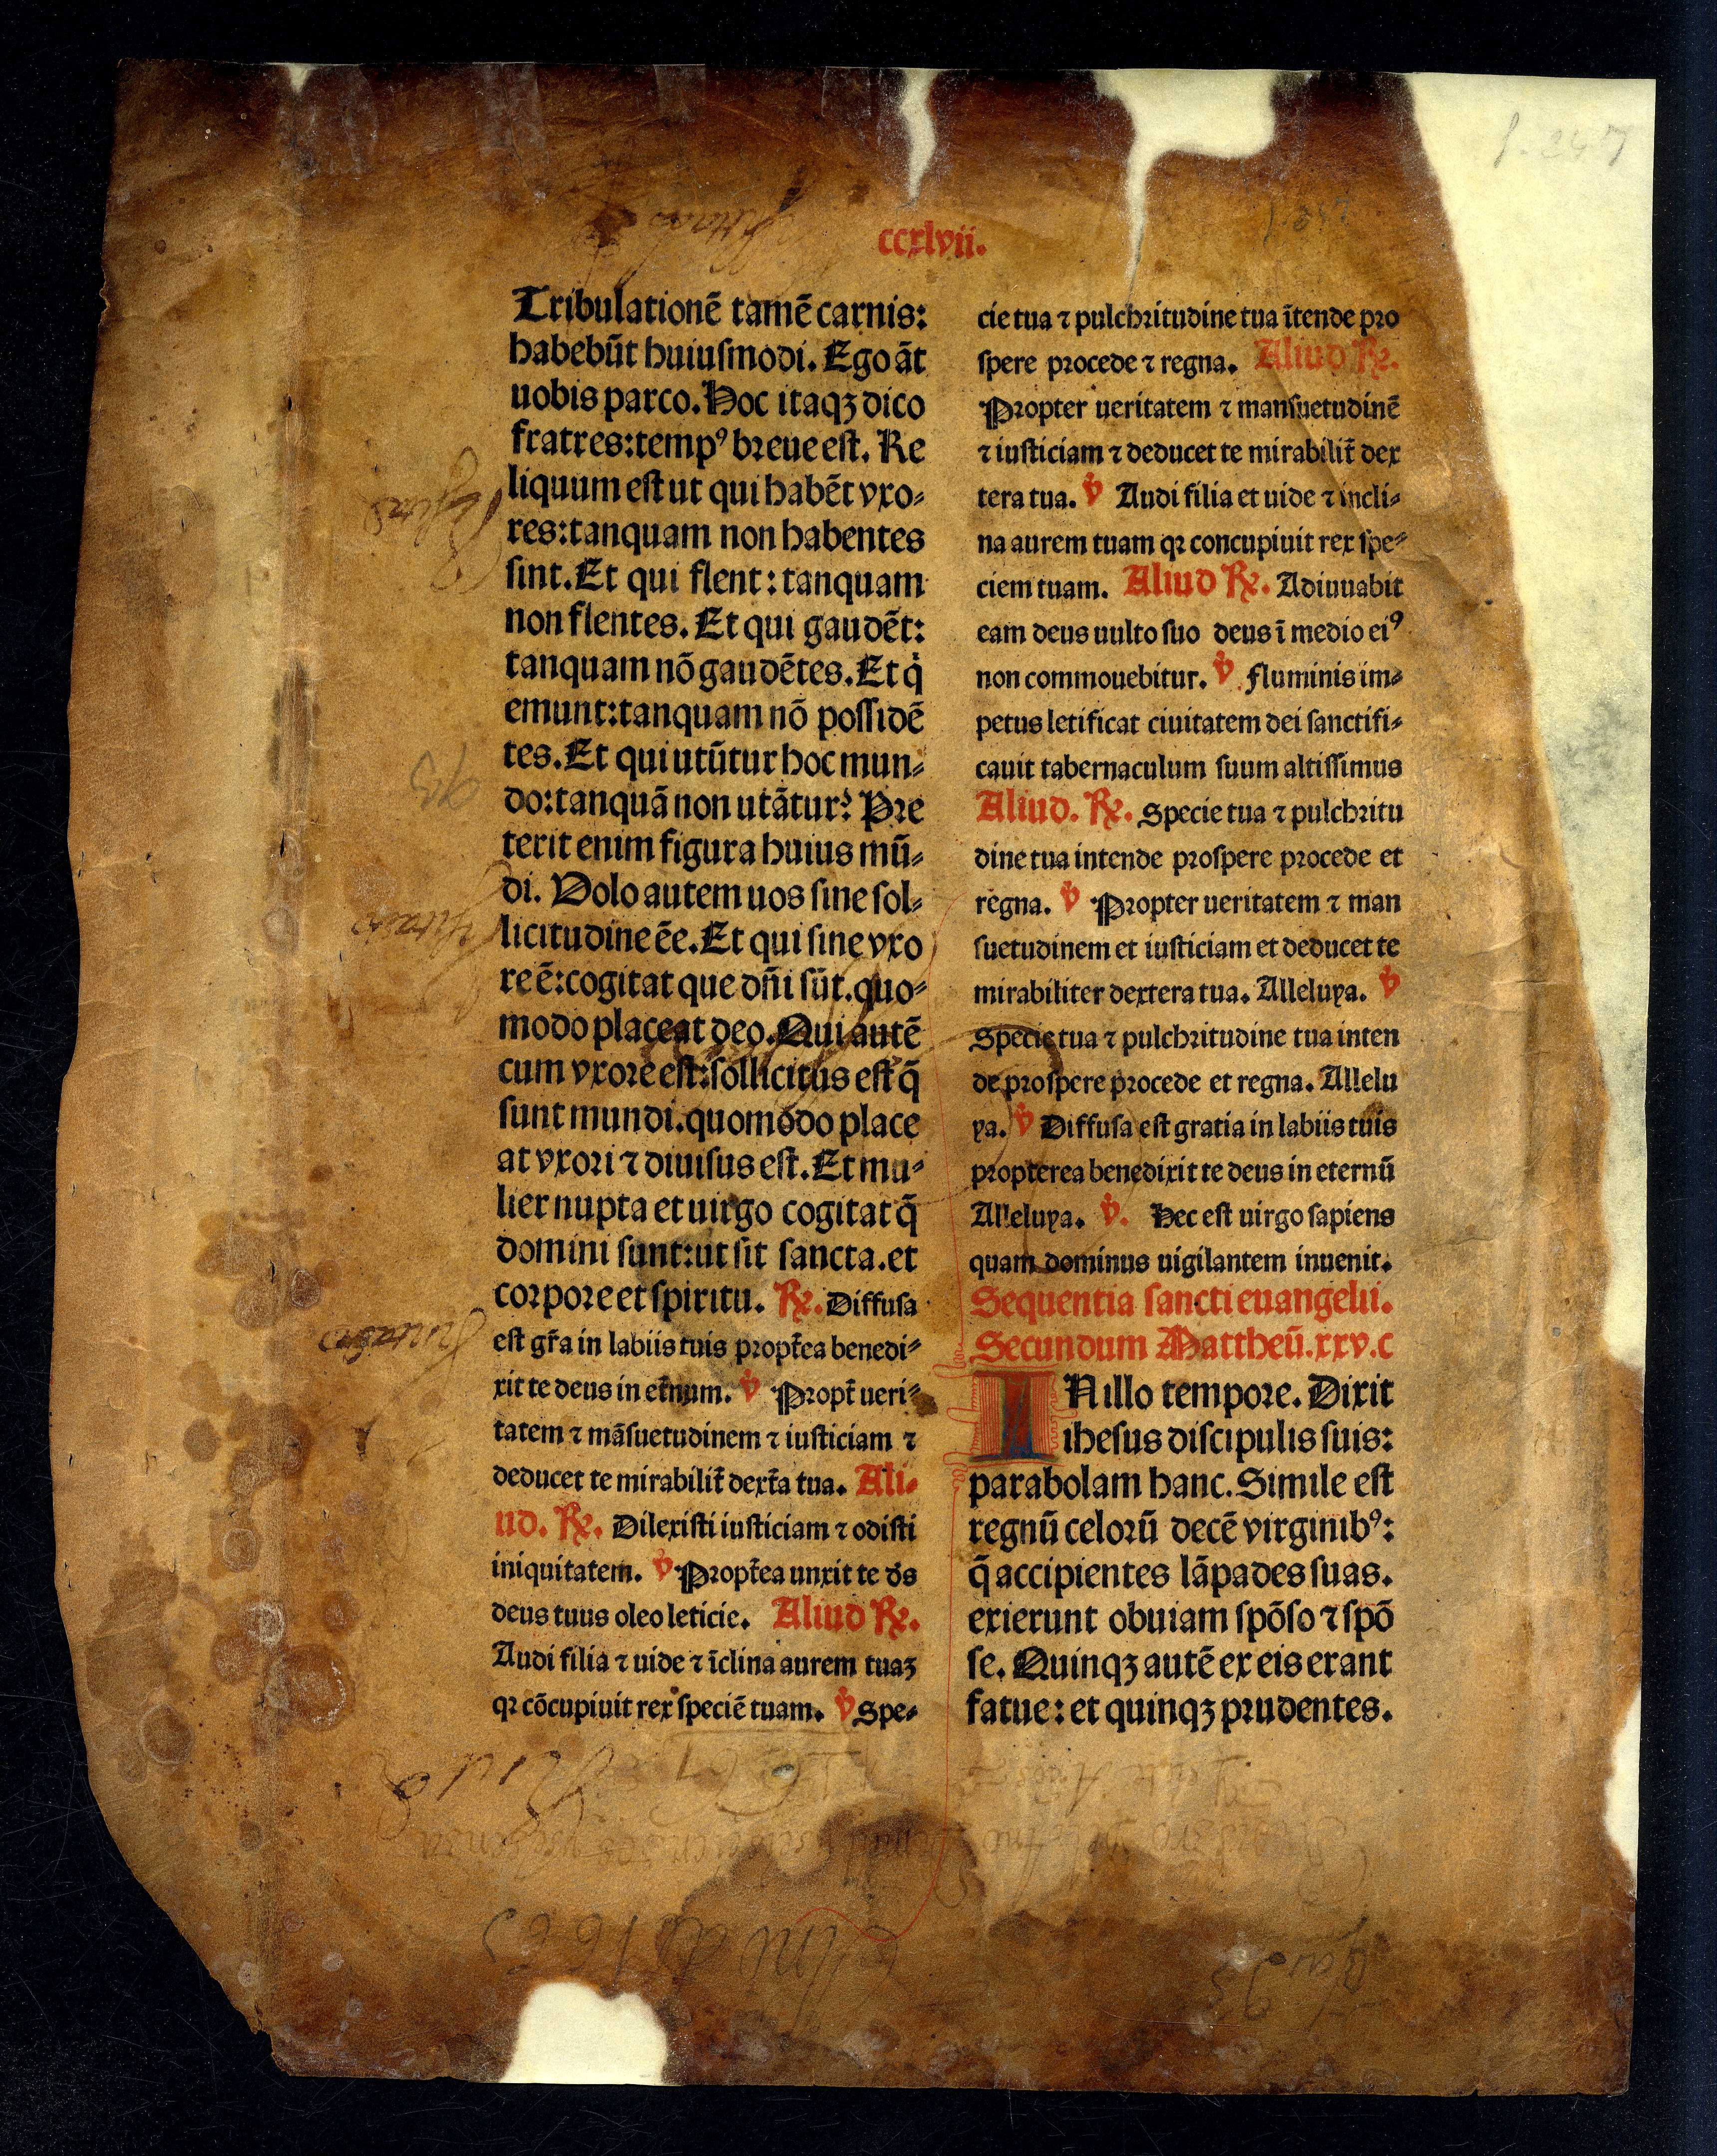 ccxlvii.
Tribulationē tamē carnis:
habebūt huiuſmodi. Ego āt
uobis parco. Hoc itaqꝫ dico
fratres: tempꝰ breue eſt. Re
liquum eſt ut qui habēt vxo⸗
res: tanquam non habentes
ſint. Et qui flent: tanquam
non flentes. Et qui gaudēt:
tanquam nō gaudētes. Et q̇
emunt: tanquam nō poſſidē
tes. Et qui utūtur hoc mun⸗
do: tanquā non utātur? Pre
terit enim figura huius mū⸗
di. Volo autem uos ſine ſol⸗
licitudine ēe. Et qui ſine vxo
re ē: cogitat que dn̄i ſūt. quo⸗
modo placeat deo. Qui autē
cum vxore eſt: ſollicitus eſt q̄
ſunt mundi. quomodo place
at vxori ⁊ diuiſus eſt. Et mu⸗
lier nupta et uirgo cogitat q̄
domini ſunt: ut ſit ſancta. et
corpore et ſpiritu. ℞. Diffuſa
eſt gr̄a in labiis tuis propt̄ea benedi⸗
xit te deus in et̄num. ℣ Propt̄ ueri⸗
tatem ⁊ māſuetudinem ⁊ iuſticiam ⁊
deducet te mirabilit̄ dext̄a tua. Ali⸗
ud. ℞. Dilexiſti iuſticiam ⁊ odiſti
iniquitatem. ℣ Propt̄ea unxit te d̄s
deus tuus oleo leticie. Aliud ℞.
Audi filia ⁊ uide ⁊ īclina aurem tuaꝫ
qꝛ cōcupiuit rex ſpeciē tuam. ℣ Spe⸗
cie tua ⁊ pulchritudine tua ītende pro
ſpere procede ⁊ regna. Aliud ℞.
Propter ueritatem ⁊ manſuetudinē
⁊ iuſticiam ⁊ deducet te mirabilit̄ dex
tera tua. ℣ Audi filia et uide ⁊ incli⸗
na aurem tuam qꝛ concupiuit rex ſpe⸗
ciem tuam. Aliud ℞. Adiuuabit
eam deus uulto ſuo deus ī medio eiꝰ
non commouebitur. ℣ Fluminis im⸗
petus letificat ciuitatem dei ſanctifi⸗
cauit tabernaculum ſuum altiſſimus
Aliud. ℞. Specie tua ⁊ pulchritu
dine tua intende proſpere procede et
regna. ℣ Propter ueritatem ⁊ man
ſuetudinem et iuſticiam et deducet te
mirabiliter dextera tua. Alleluya. ℣
Specie tua ⁊ pulchritudine tua inten
de proſpere procede et regna. Allelu
ya. ℣ Diffuſa eſt gratia in labiis tuis
propterea benedixit te deus in eternū
Alleluya. ℣. Hec eſt uirgo ſapiens
quam dominus uigilantem inuenit.
Sequentia ſancti euangelii.
Secundum Mattheū. xxv. c
IN illo tempore. Dixit
iheſus diſcipulis ſuis:
parabolam hanc. Simile eſt
regnū celorū decē virginibꝰ:
q̄ accipientes lāpades ſuas.
exierunt obuiam ſpōſo ⁊ ſpō
ſe. Quinqꝫ autē ex eis erant
fatue: et quinqꝫ prudentes.